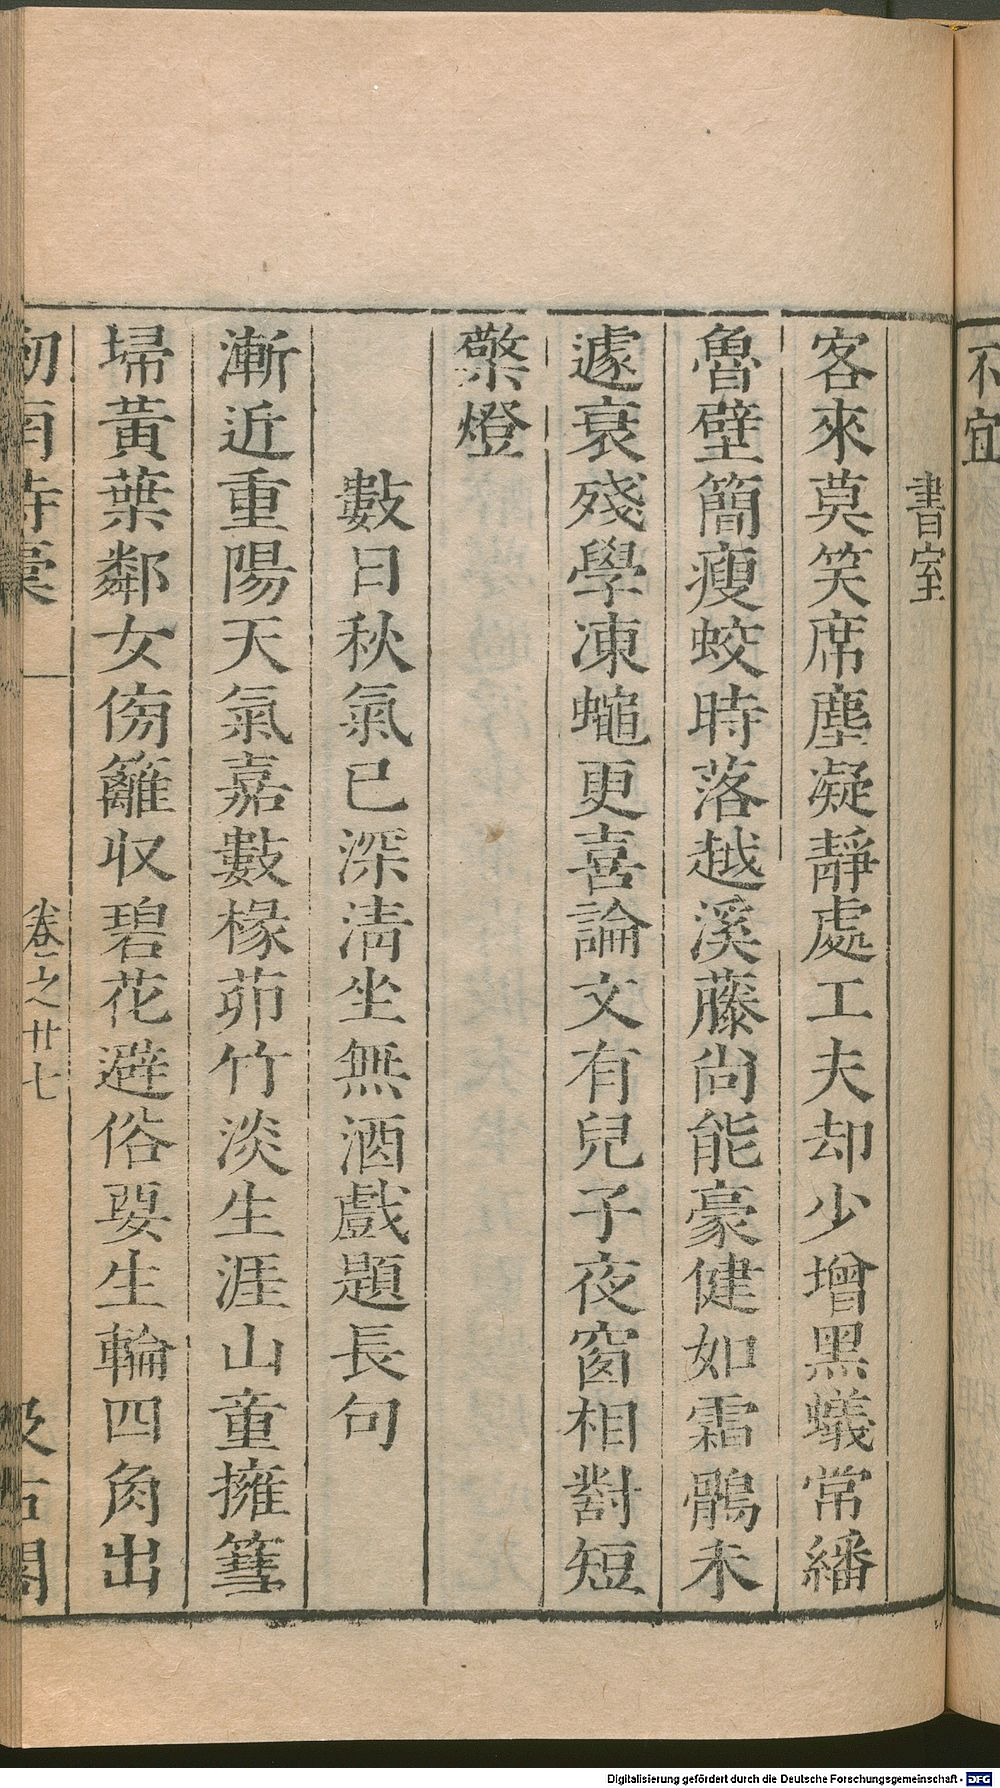 不宜
書室
客來莫笑席塵凝靜處工夫却少增黑蟻常繙
魯壁簡瘦蛟時落越溪藤尚能豪健如霜鶻未
遽衰殘學凍蠅更喜論文有兒子夜窗相對短
檠燈
數日秋氣已深清坐無酒戲題長句
漸近重陽天氣嘉數椽茆竹淡生涯山童擁篲
埽黃葉鄰女傍籬収碧花避俗要生輪四角出
劒南詩稾
卷之廿七
汲古閣
Digitalisierung gefördert durch die Deutsche Forschungsgemeinschaft - DFG